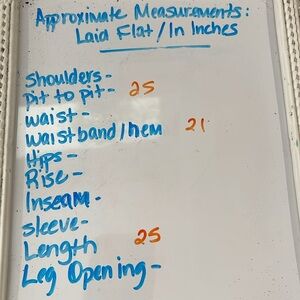 Approximate Measurements:
Laid Flat/In Inches
Shoulders-
pit to pit- 25
waist-
waistband/hem 21
Hips-
Rise-
Inseam-
sleeve-
Length 25
Leg Opening-